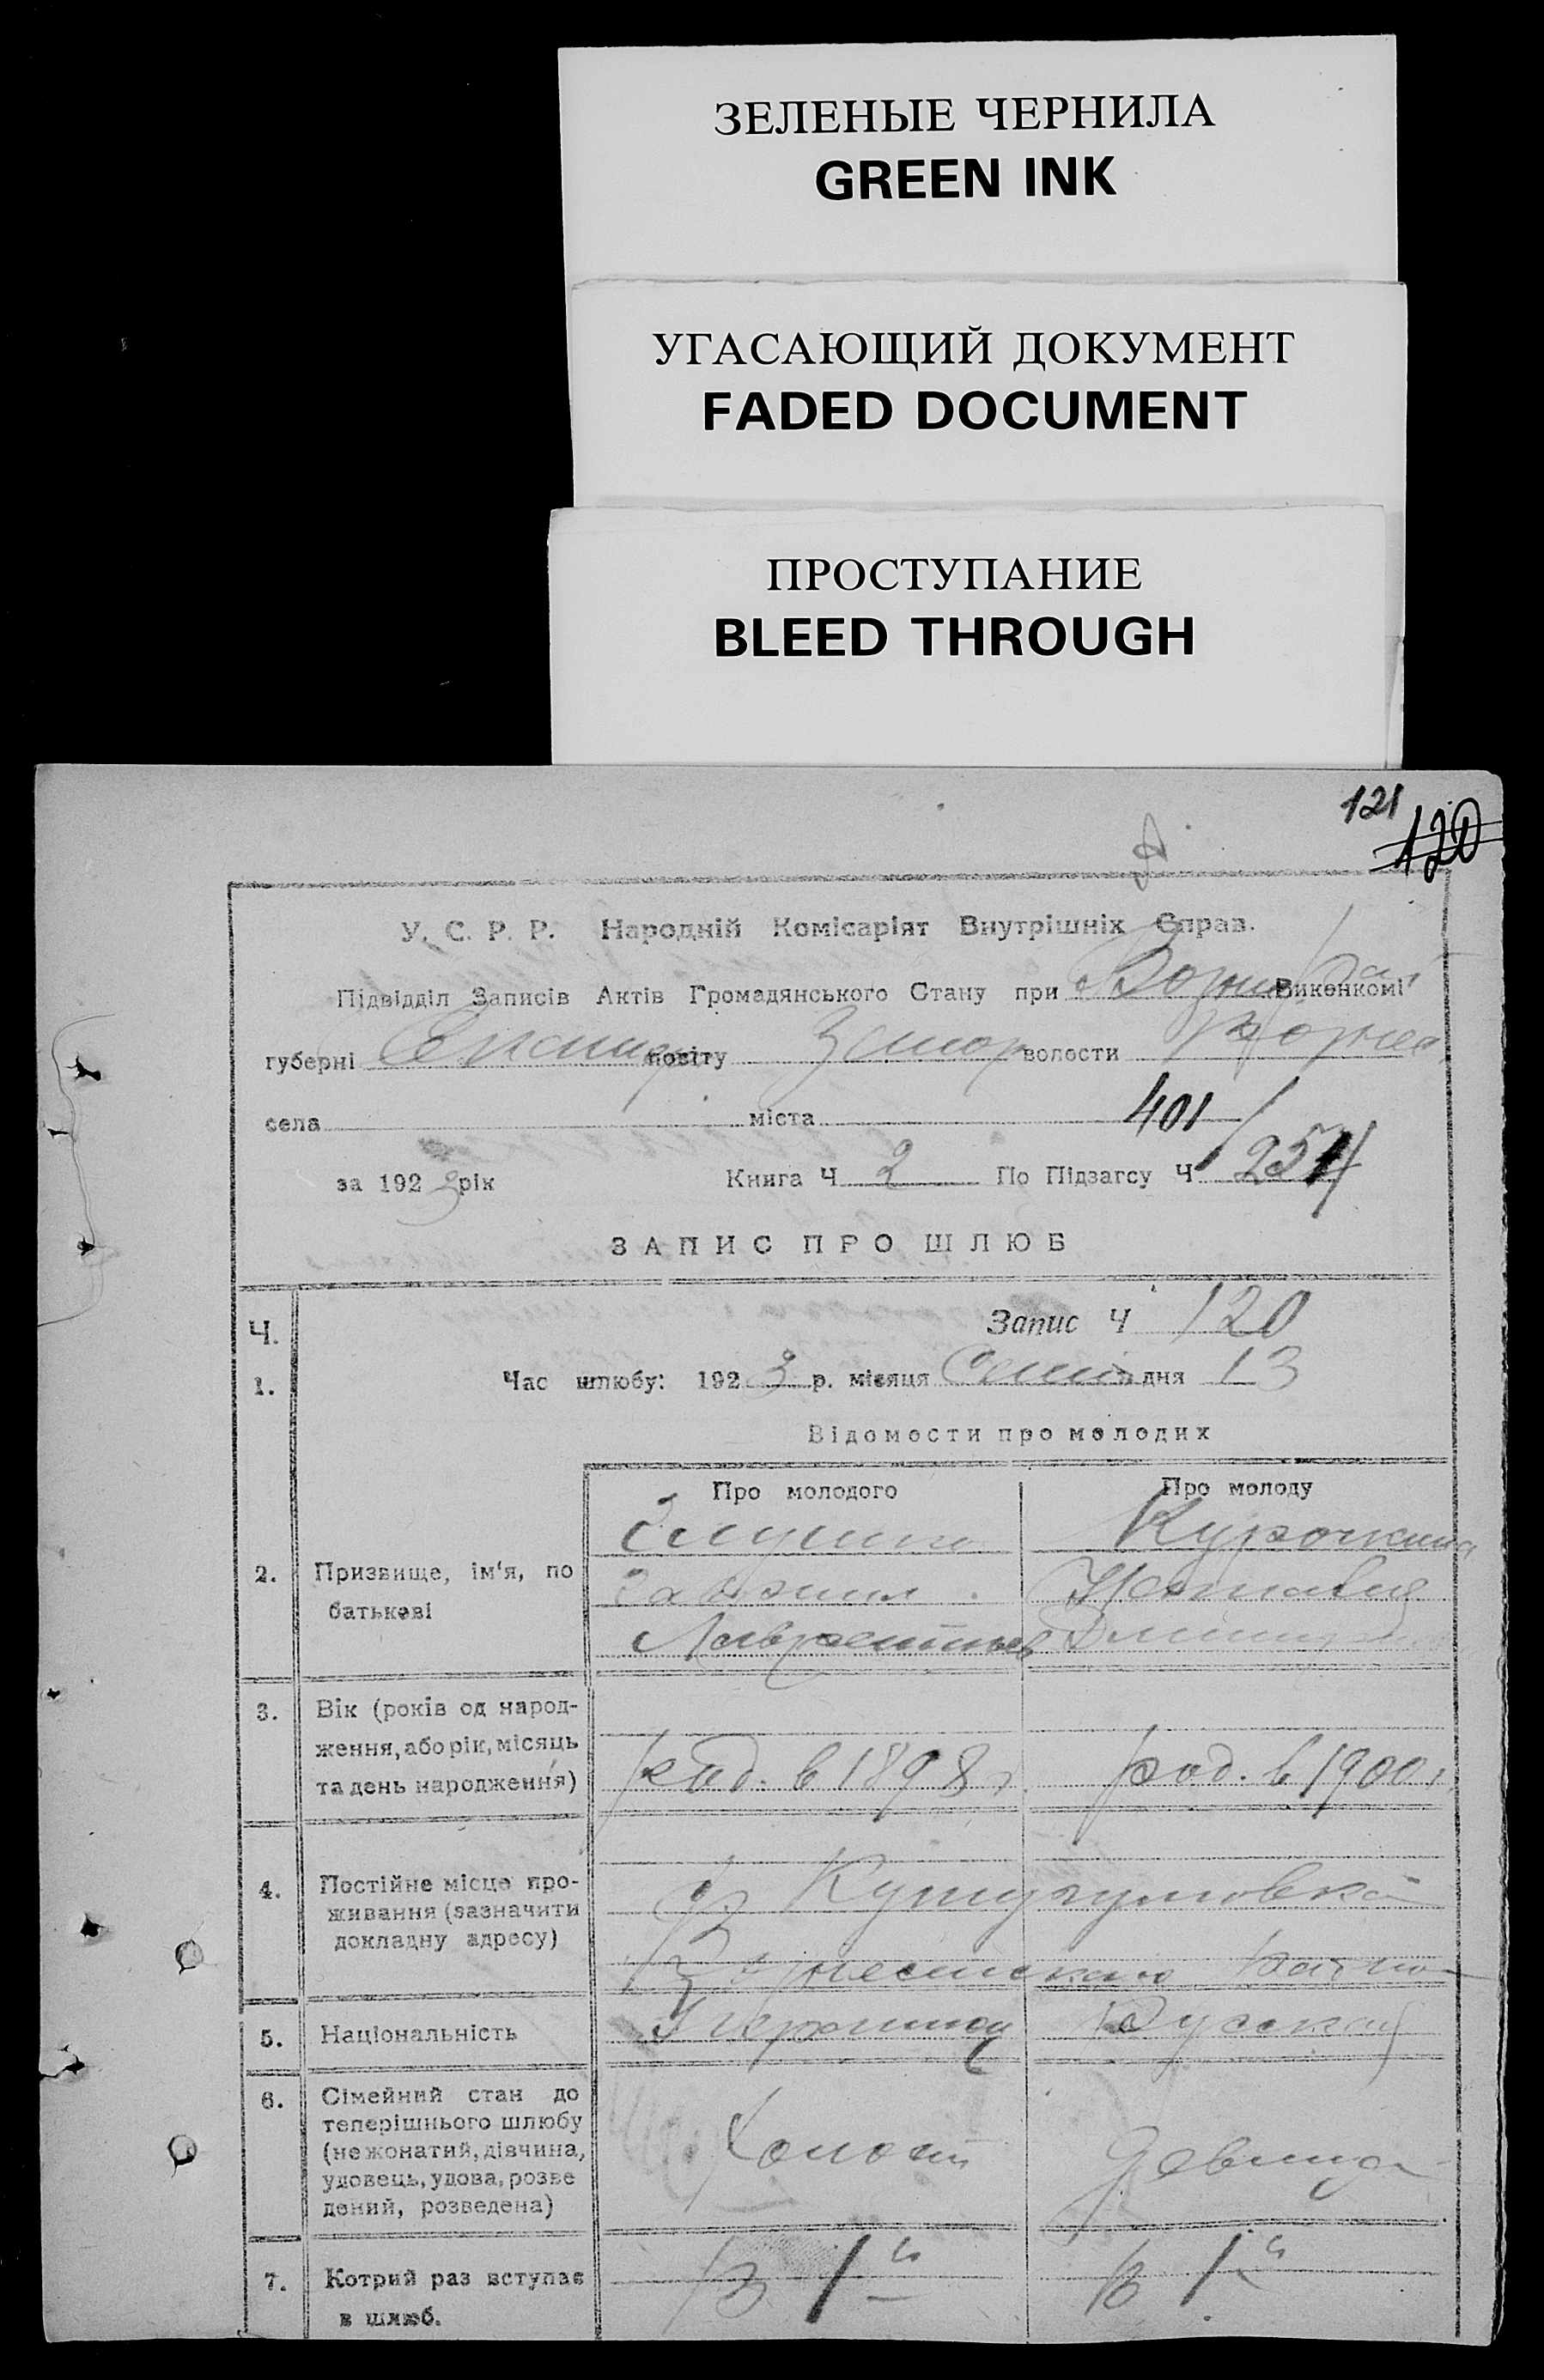 ЗЕЛЕНЫЕ ЧЕРНИЛА
GREEN INK
УГАСАЮЩИЙ ДОКУМЕНТ
FADED DOCUMENT
ПРОСТУПАНИЕ
BLEED THROUGH
121
120
У. С. Р. Р. Народній Комісаріят Внутрішніх Справ.
Підвідділ Записів Актів Громадянського Стану при Виконкомі
губерні повіту Запор волости
села міста 401
за 1923 рік Книга Ч 2 По Підзагсу Ч 254
ЗАПИС ПРО ШЛЮБ
Ч. Запис Ч 120
1. Час шлюбу: 1923 р. місяця дня 13
Відомости про молодих
Про молодого Про молоду
Курочкина
2. Призвище, ім'я, по
батькові
Лаврентьев
3. Вік (років од народ-
ження, або рік, місяць
та день народження) род. в 1898 г. род. в 1900 г.
4. Постійне місце про-
живання (зазначити
докладну адресу)
5. Національність Украинец Русская
6. Сімейний стан до
теперішнього шлюбу
(не жонатий, дівчина, Холост Девица
удовець, удова, розве
дений, розведена)
7. Котрий раз вступає В 1й В 1й
в шлюб.